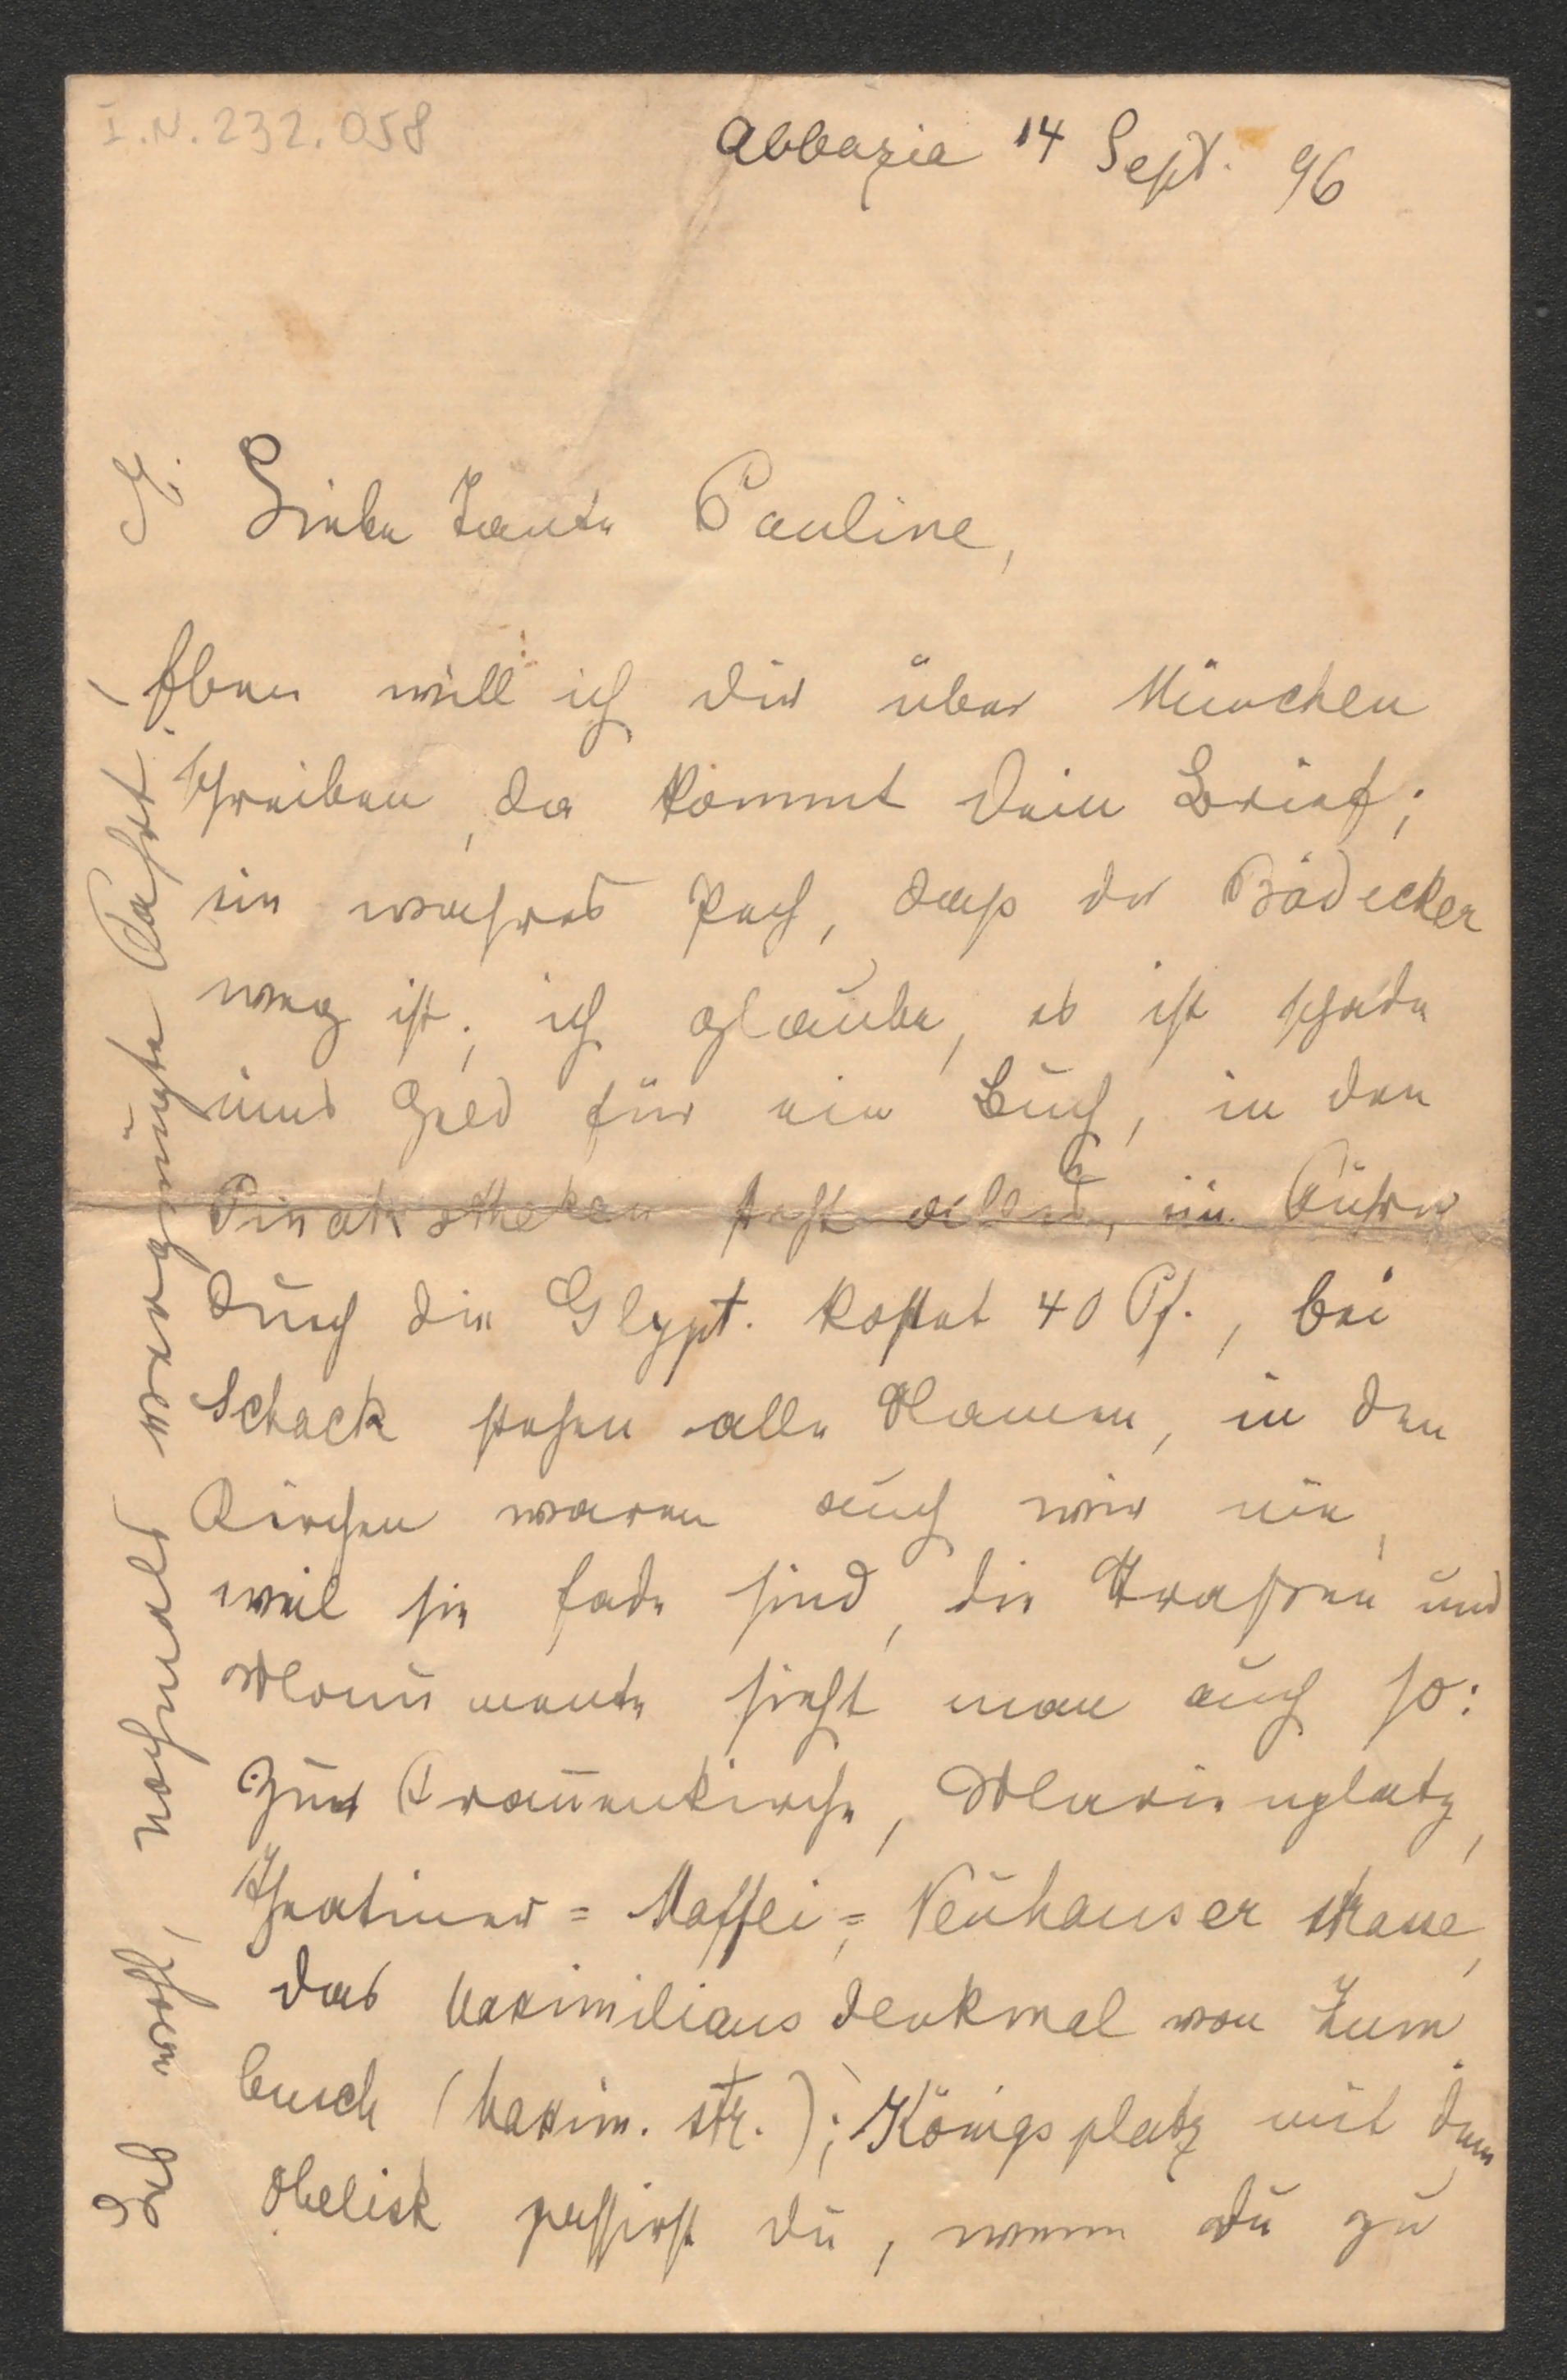 I.N. 232.058
Abbazia 14 Sept. 96
Liebe Tante Pauline,
Eben will ich dir über München
schreiben, da kommt dein Brief;
ein wahres Pech, daß der Bädecker
weg ist; ich glaube, es ist schade
ums Geld für ein Buch, in den
Pinakotheken steht alles, ein Führer
durch die Glypt. kostet 40 Pf., bei
Schack stehen alle Namen, in den
Kirchen waren auch wir nie,
weil sie fade sind, die Straßen und
Monumente sieht man auch so:
Zur Frauenkirche, Marienplatz,
Theatiner= Maffei=, Neuhauser strasse,
das Maximiliansdenkmal von Zum
busch (Maxim. str.); Königsplatz mit dem
Obelisk passirst du, wenn du zu
Leb wohl, nochmals vergnügte Fahrt!